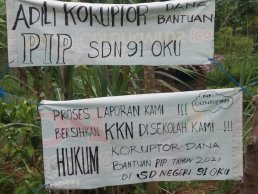 ADILI KORUPTOR DANA
BANTUAN
PIP SDN 91 OKU
PROSES LAPORAN KAMI !!!
BERSIHKAN KKN DISEKOLAH KAMI !!!
HUKUM KORUPTOR DANA
BANTUAN PIP TAHUN 2021
DI SD NEGERI 91 OKU